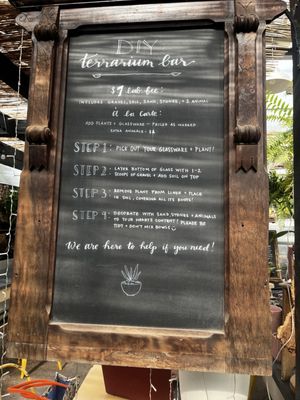 DIY
terrarium bar
$9 Lab fee:
INCLUDES GRAVEL, SOIL, SAND, STONES, + 1 ANIMAL
A La Carte:
ADD PLANTS + GLASSWARE – PRICED AS MARKED
EXTRA ANIMALS - $2
STEP 1: PICK OUT YOUR GLASSWARE + PLANT!
STEP 2: LAYER BOTTOM OF GLASS WITH 1-2
SCOOPS OF GRAVEL + ADD SOIL ON TOP
STEP 3: REMOVE PLANT FROM LINER + PLACE
IN SOIL, COVERING ALL ITS ROOTS!
STEP 4: DECORATE WITH SAND, STONES + ANIMALS
TO YOUR HEARTS CONTENT! PLEASE BE
TIDY + DON'T MIX BOWLS :)
We are here to help if you need!